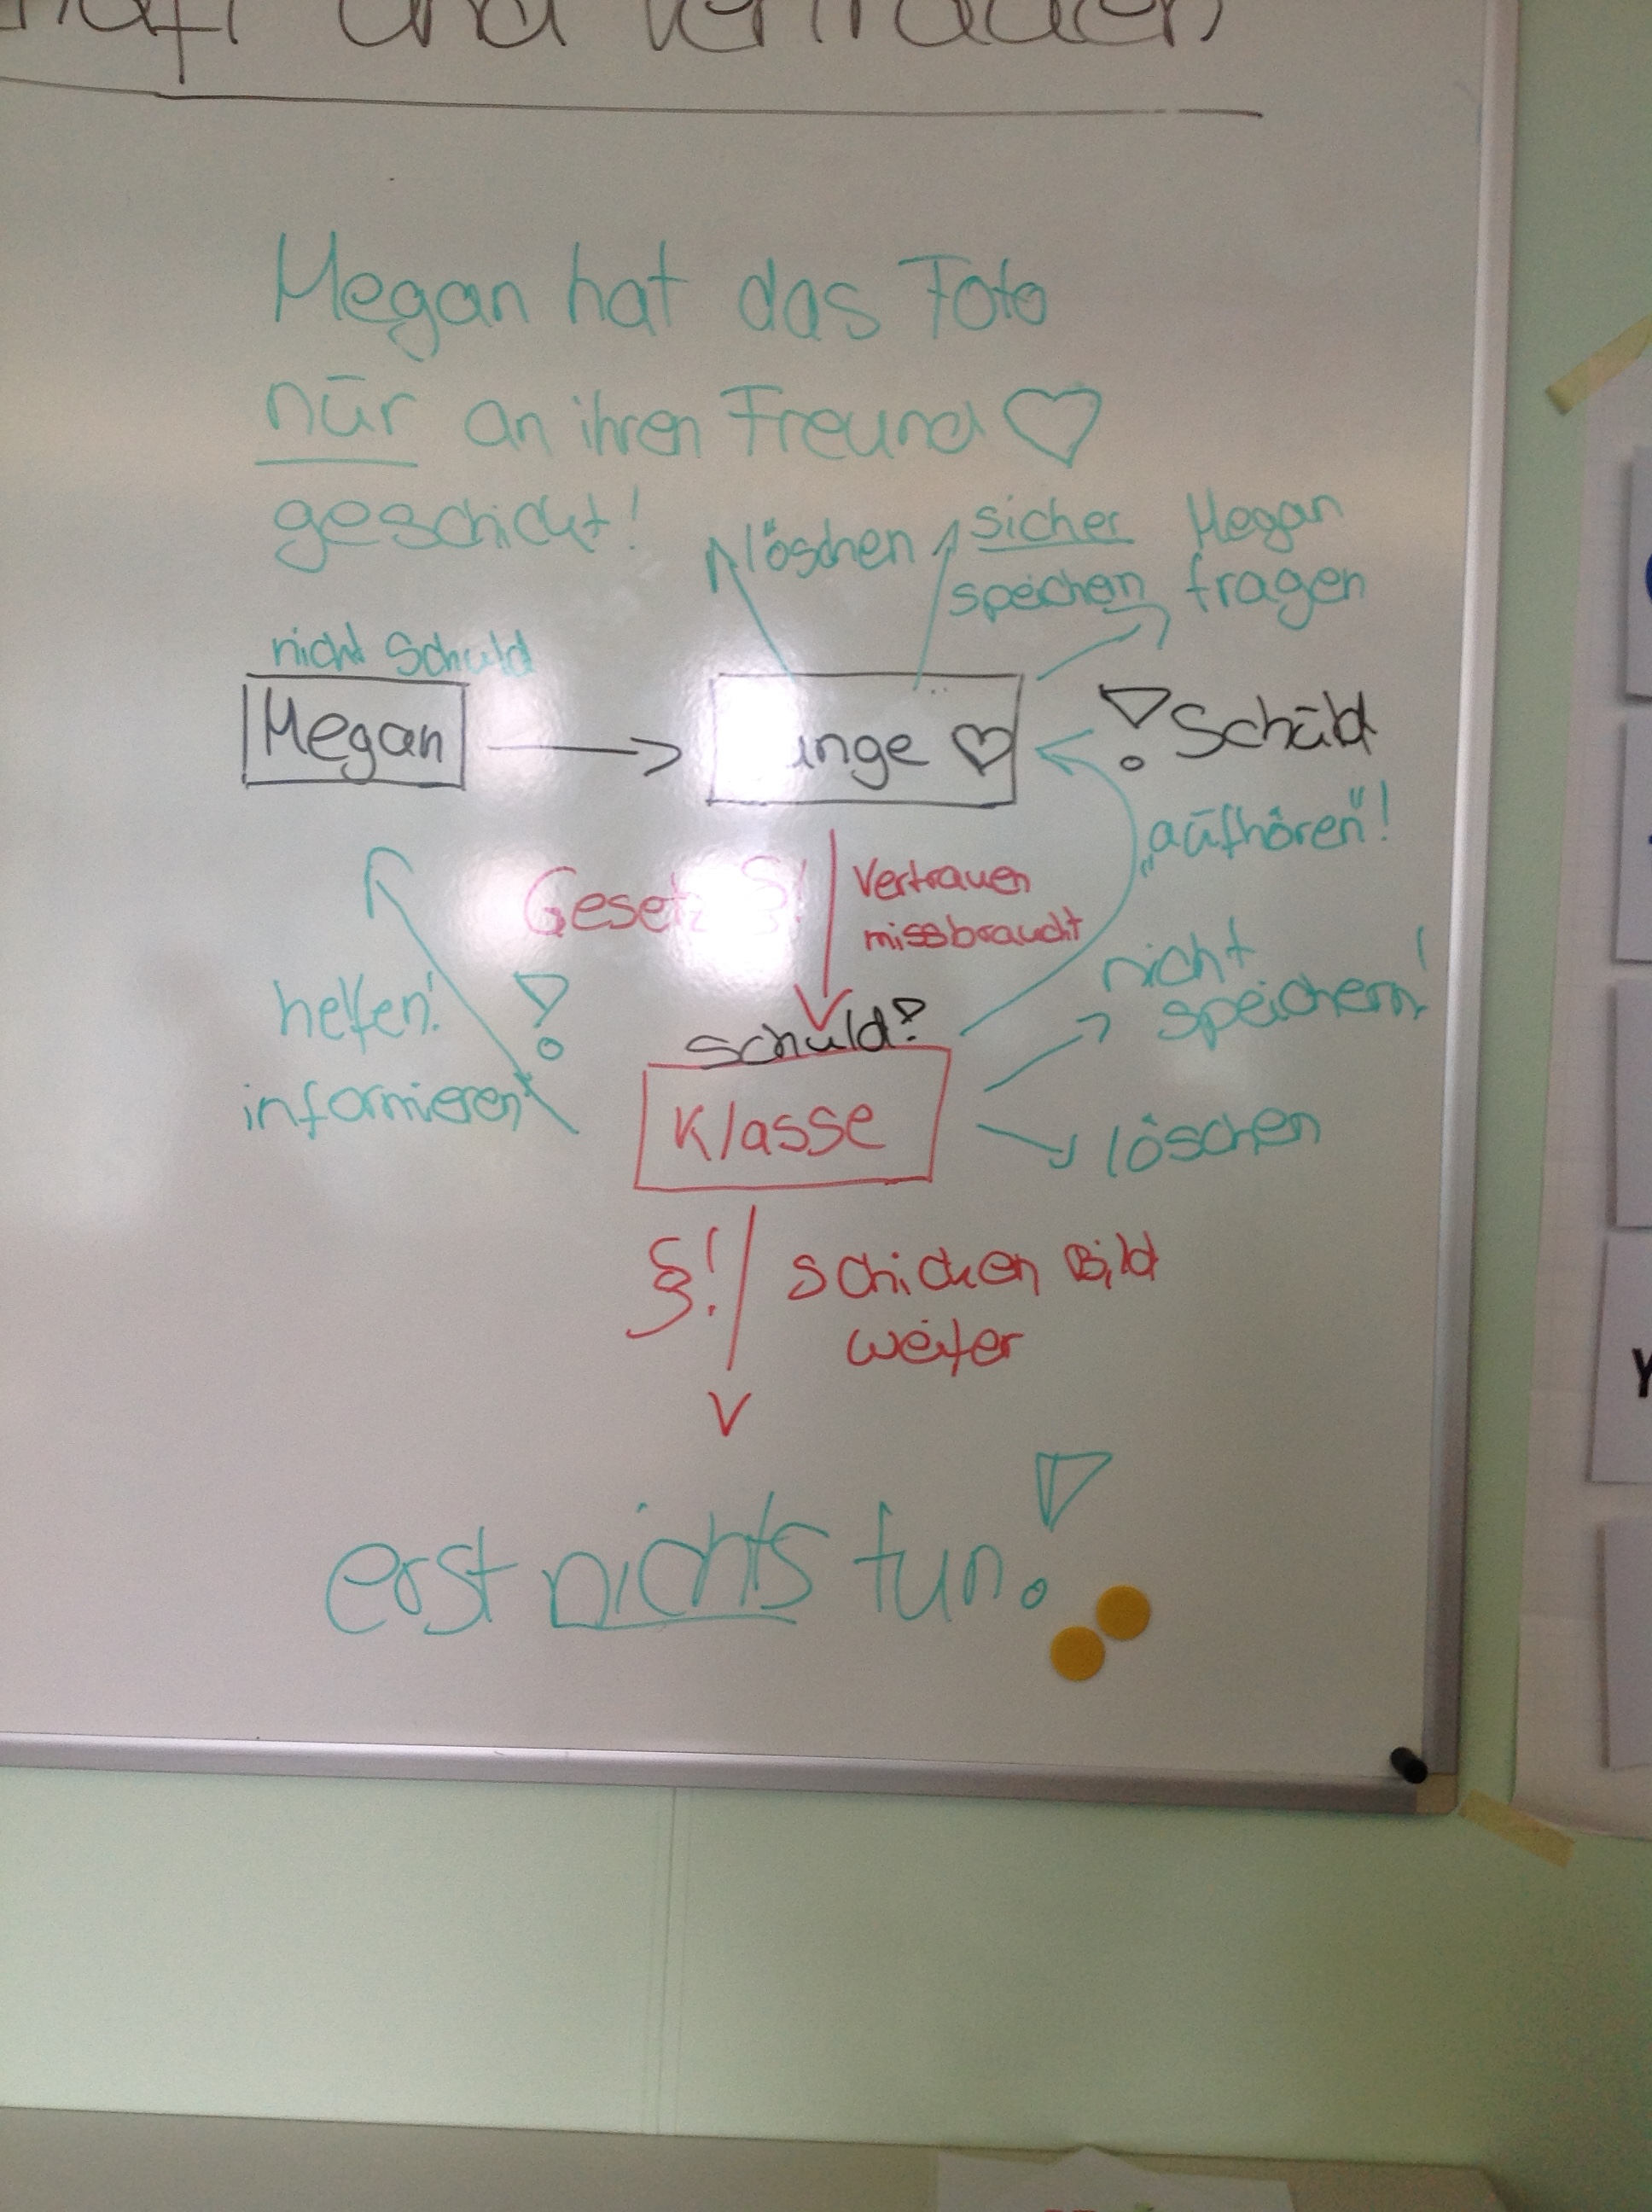 und Vertrauen
Megan hat das Foto
nur an ihren Freund ♡
geschickt!
löschen
sicher
speichern
Megan
fragen
nicht Schuld
Megan
unge ♡
! Schuld
"aufhören"!
Gesetz §!
Vertrauen
missbraucht
nicht
speichern!
helfen!
informieren
!
schuld?
Klasse
löschen
§!
schicken Bild
weiter
erst nichts tun!
Y